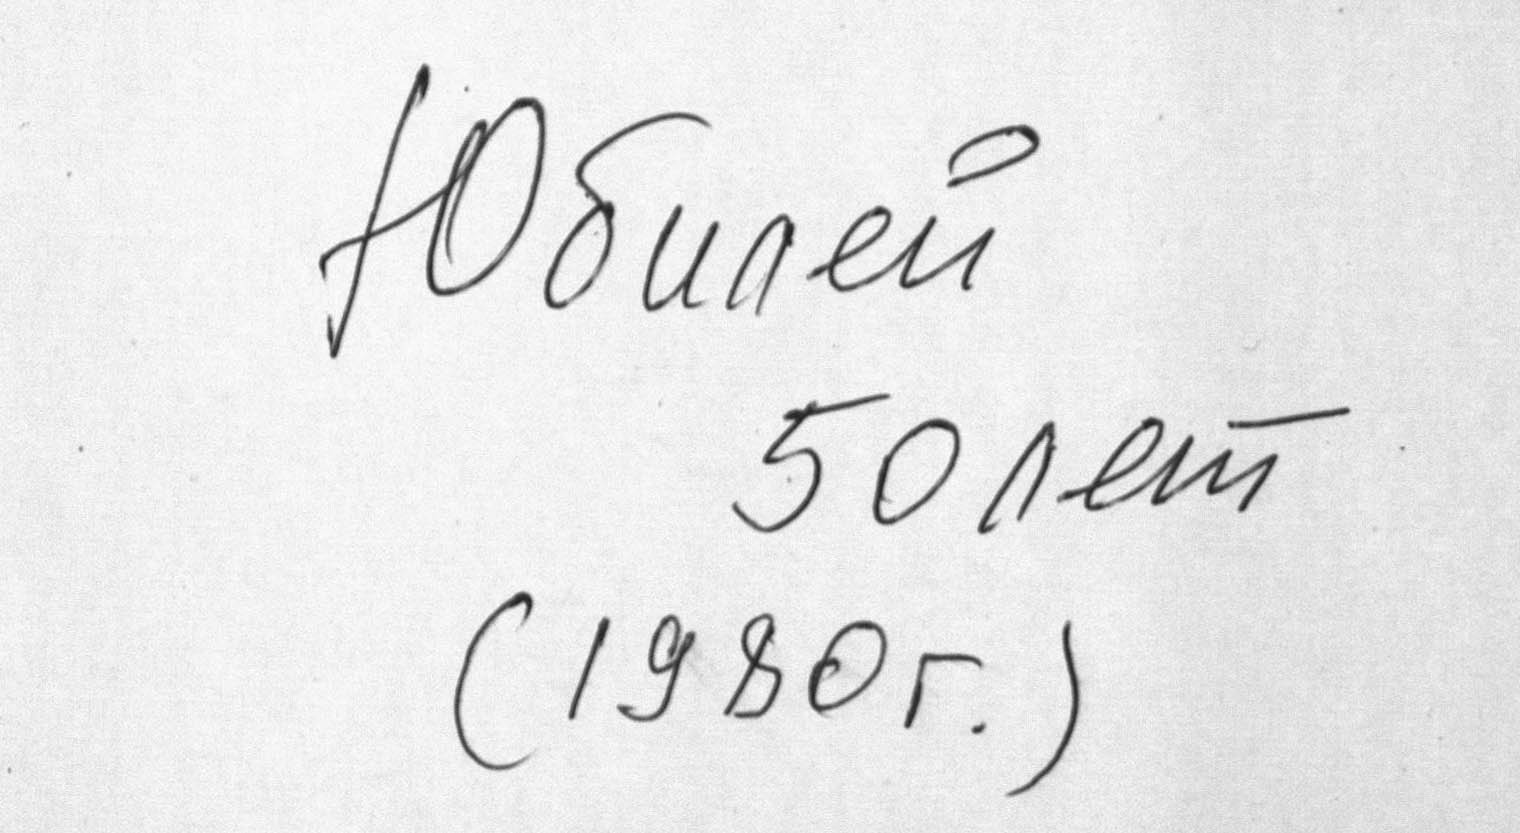 Юбилей
50 лет
(1980г.)